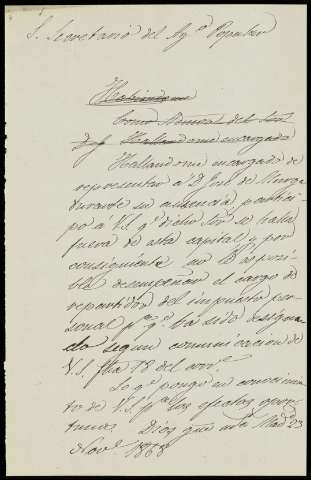 S. Secretario del Ay.º Popular
Habiendome
como
Hallandome encargado
Hallandome encargado de
representar á D. José de Murga
durante su ausencia, partici-
po á V.S. q.e dicho Sor. se halla
fuera de esta capital, y por
consiguiente no le es posi-
ble desempeñar el cargo de
repartidor del impuesto per-
sonal p.a q.e ha sido designa-
do segun comunicacion de
V.S. fha 18 del corr.e
Lo q.e pongo en conocimien-
to de V.S. p.a los efectos opor-
tunos. Dios gue Mad.d 23
Nov.e 1868